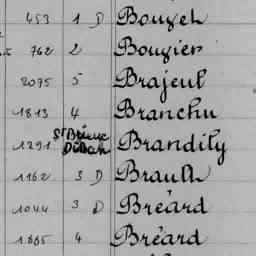 453 1 D Bougeh
762 2 Bougier
2075 5 Brajeul
1813 4 Branchu
1291 St Brieuc Dinan Brandily
1162 3 D Brault
1044 3 D Bréard
1865 4 Bréard